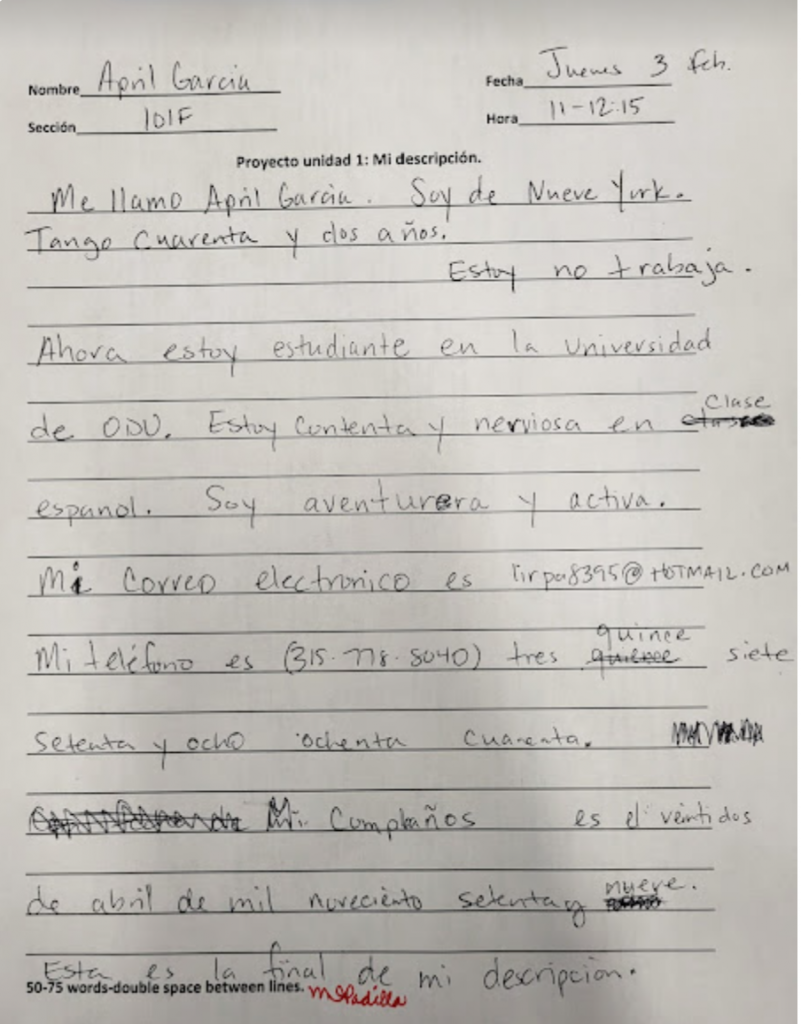 Nombre April Garcia Fecha Jueves 3 feb.
Sección 101F Hora 11-12:15
Proyecto unidad 1: Mi descripción.
Me llamo April Garcia. Soy de Nueve York.
Tango Cuarenta y dos años.
Estoy no trabaja.
Ahora estoy estudiante en la universidad
de ODU. Estoy Contenta y nerviosa en clase
espanol. Soy aventurera y activa.
Mi Correo electronico es lirpa8395@HOTMAIL.COM
Mi teléfono es (315-778-8040) tres quince siete
setenta y ocho ochenta cuarenta.
Mi Compleaños es el veintidos
de abril de mil noveciento setenta y nueve.
Esta es la final de mi descripcion.
50-75 words-double space between lines. MPadilla